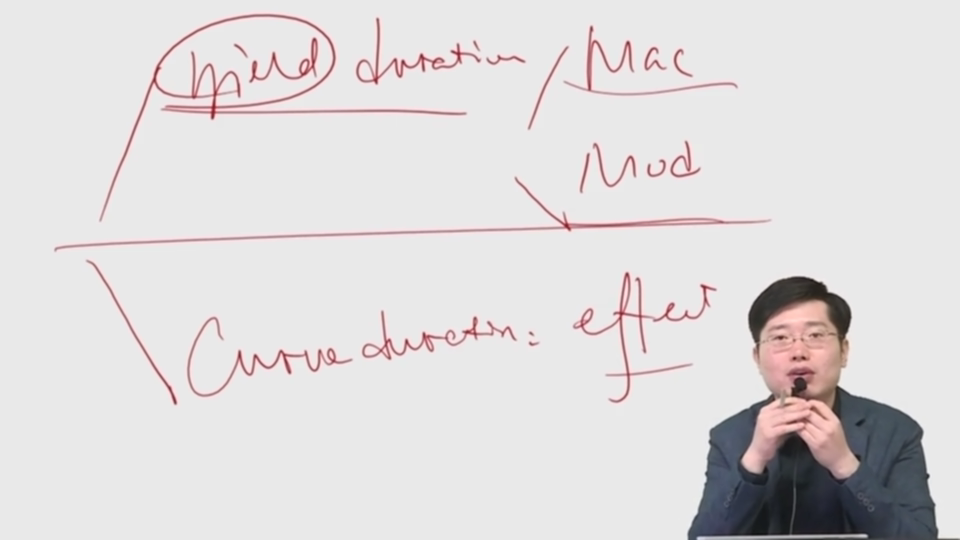 yield duration
Mac
Mod
Curve duration: effect